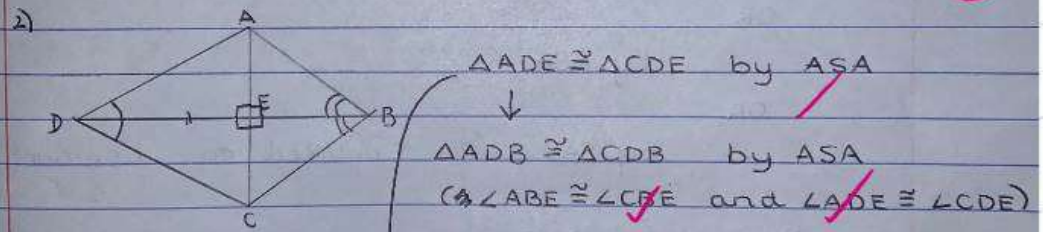 2)
A
D
E
B
C
△ADE ≅ △CDE by ASA
↓
△ADB ≅ △CDB by ASA
(∠ABE ≅ ∠CBE and ∠ADE ≅ ∠CDE)